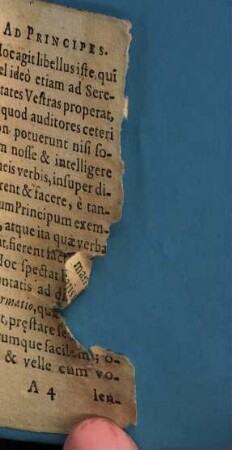 AD PRINCIPES.
Hoc agit libellus iste, qui
vel ideò etiam ad Sere-
nitates Vestras properat,
quod auditores ceteri
non potuerunt nisi so-
m nosse & intelligere
ucis verbis, insuper di-
rent & facere, è tan-
um Principum exem-
, atque ita quæ verba
at, fierent
Hoc spectat
ontatis ad
rmatio, quæ
t, præstare se
rumque facilem; o-
& velle cum vo-
A 4 len-